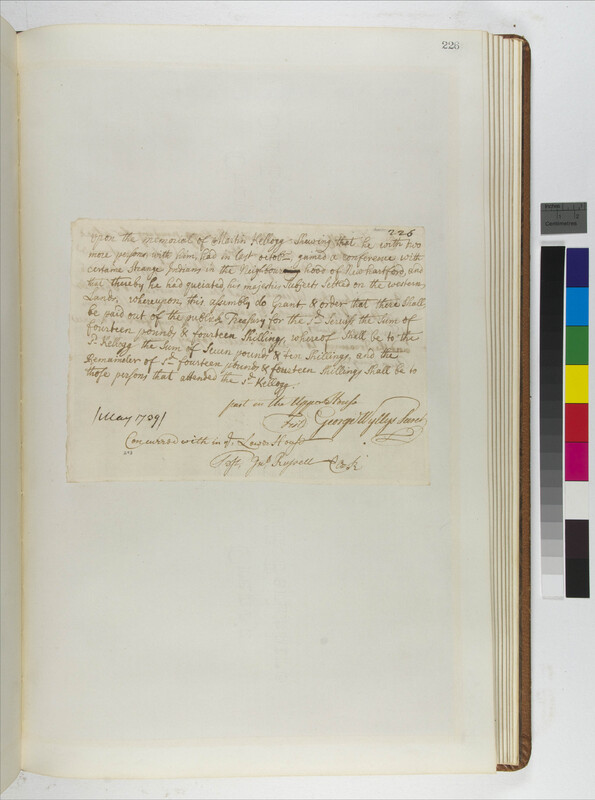 226
226
Upon the memorial of Martin Kellogg Shewing that he with two
more persons with him, had in last octobr gained a Conference with
certaine Strange Indians in the Neighbourhood of New hartford, and
that thereby he had quieted his majesties Subjects Setled on the western
Lands, whereupon, this assembly do Grant & order that there Shall
be paid out of the publick Treasury for the sd Service the Sum of
fourteen pounds & fourteen Shillings, whereof Shall be to the
sd Kellogg the Sum of Seven pounds & ten Shillings, and the
Remainder of sd fourteen pounds & fourteen Shillings Shall be to
those persons that attended the sd Kellogg.
past in the Upper House
Test George Wyllys Secret
/May 1739/
Concurred with in ye Lower House
Test Clerk